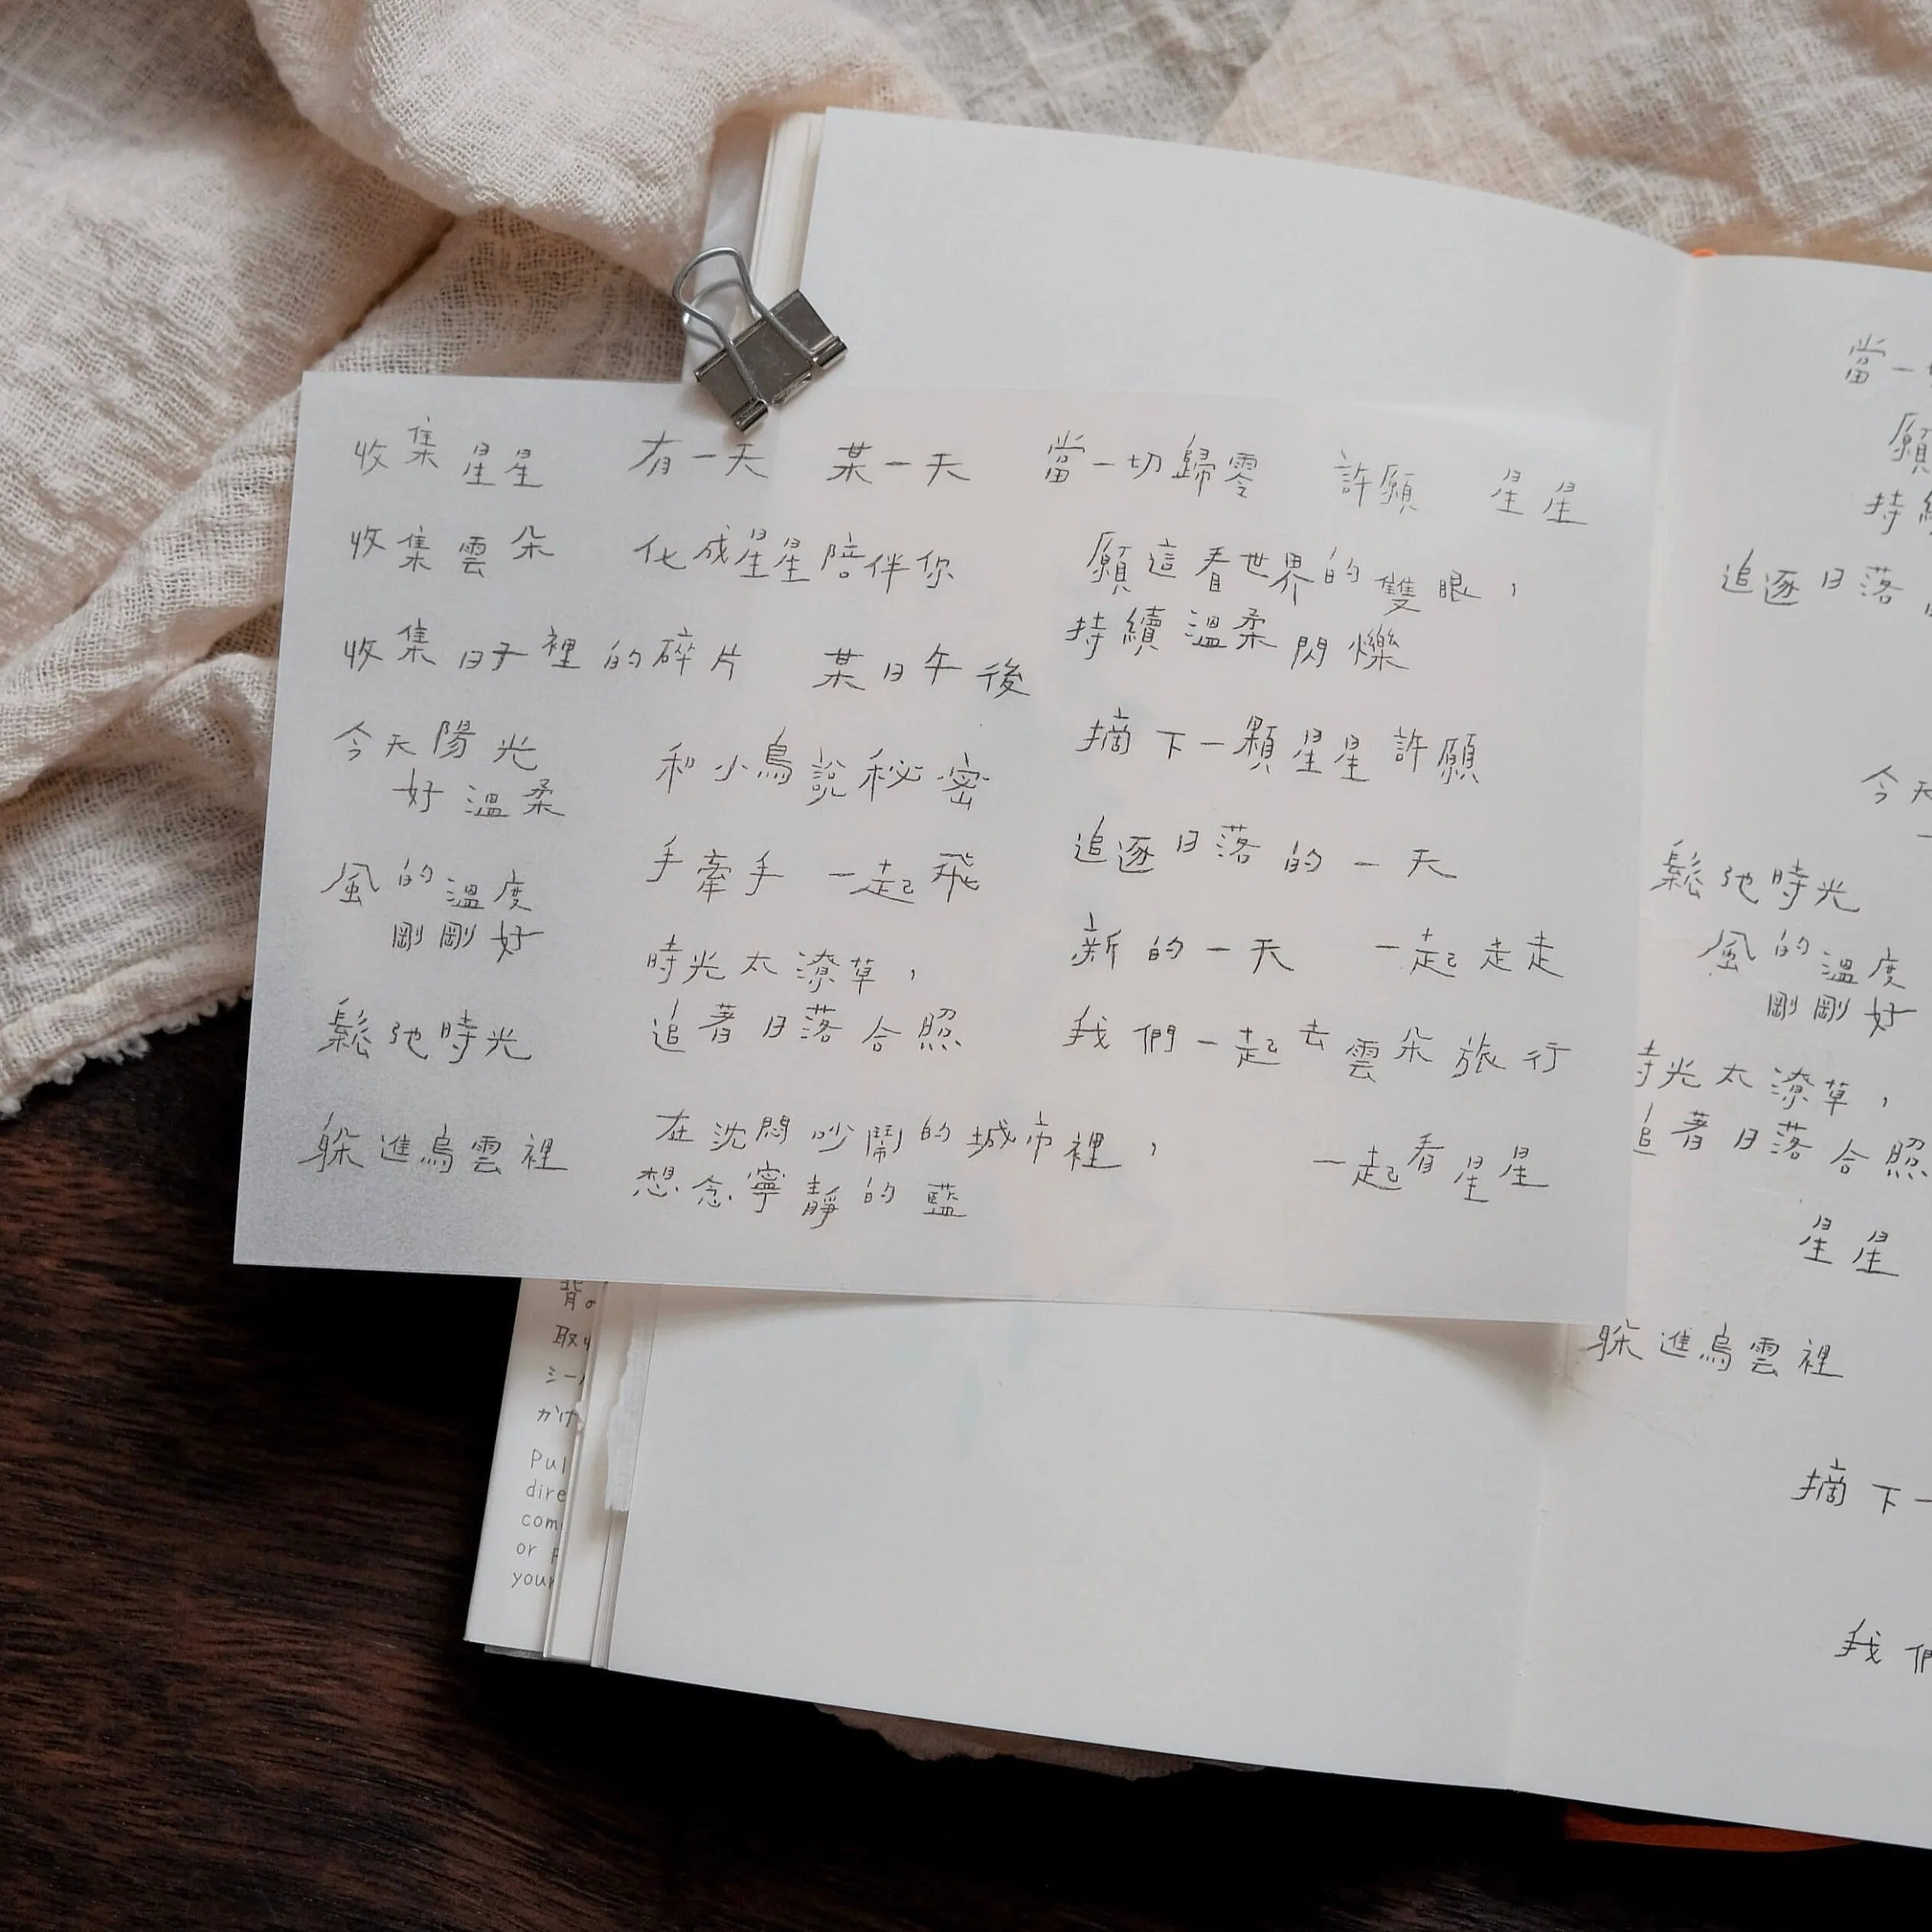 收集星星 有一天 某一天 當一切歸零 許願 星星
收集雲朵 化成星星陪伴你
願這看世界的雙眼，
持續溫柔閃爍
收集日子裡的碎片 某日午後
今天陽光
好溫柔
和小鳥說秘密
摘下一顆星星許願
風的溫度
剛剛好
手牽手 一起飛
追逐日落的一天
時光太潦草，
追著日落合照
新的一天 一起走走
鬆弛時光
我們一起去雲朵旅行
躲進烏雲裡
在沈悶吵鬧的城市裡，
想念寧靜的藍
一起看星星
當一
願
持
追逐日落
今天
鬆弛時光
風的溫度
剛剛好
時光太潦草，
追著日落合照
星星
躲進烏雲裡
摘下一
我們
背の
取
シー
かけ
Pul
dire
com
or
your